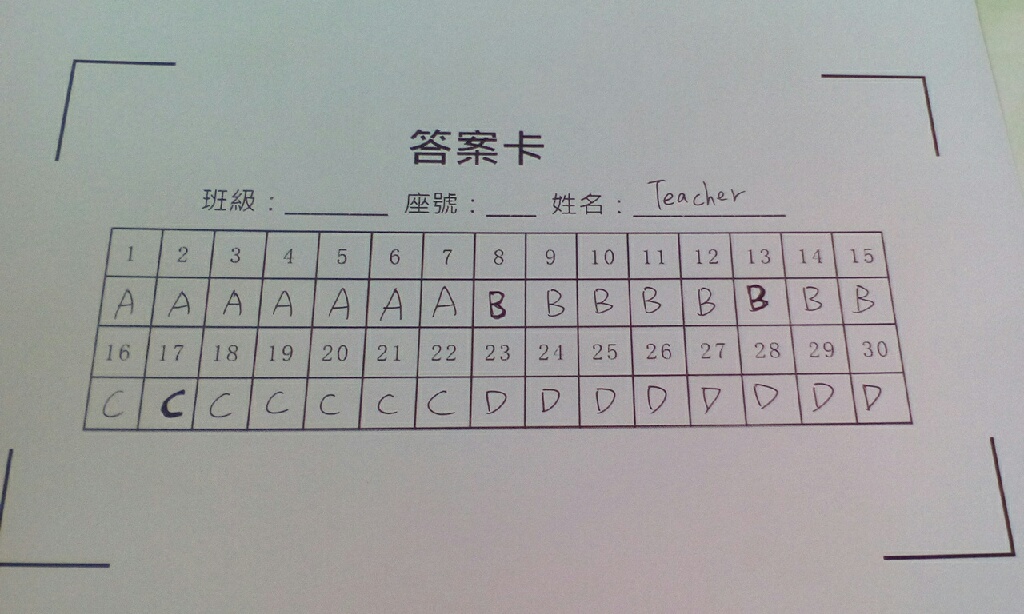 答案卡
班級：______ 座號：___ 姓名：Teacher
1 2 3 4 5 6 7 8 9 10 11 12 13 14 15
A A A A A A A B B B B B B B B
16 17 18 19 20 21 22 23 24 25 26 27 28 29 30
C C C C C C C D D D D D D D D